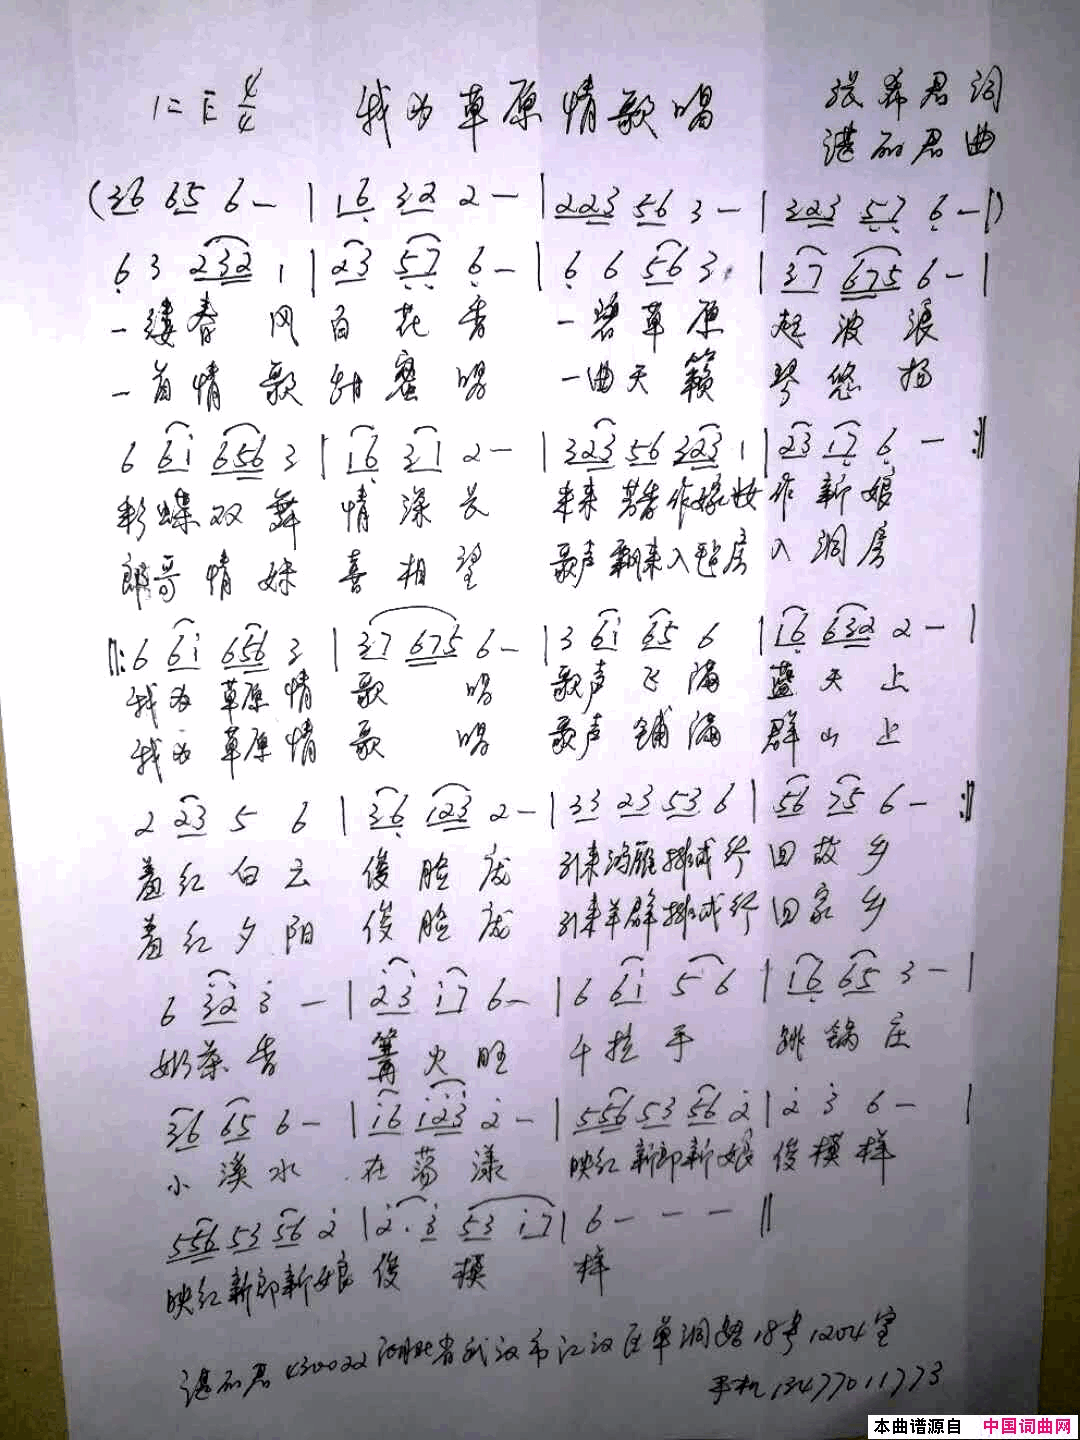 1=E 4/4 我为草原情歌唱 张希君词
谌丽君曲
(36 65 6 - | 16 32 2 - | 223 56 3 - | 323 57 6 - |)
6 3 232 1 | 23 57 6 - | 6 6 56 3 | 37 675 6 - |
一缕春风百花香 一碧草原起波浪
一首情歌甜蜜唱 一曲天籁琴悠扬
6 61 656 3 | 16 31 2 - | 323 56 323 1 | 23 17 6 - :||
彩蝶双舞情深长 来来 作嫁妆作新娘
郎哥情妹喜相望 歌声飘来入毡房入洞房
||: 6 61 656 3 | 37 675 6 - | 3 61 65 6 | 16 632 2 - |
我为草原情歌唱 歌声飞满蓝天上
我为草原情歌唱 歌声铺满群山上
2 23 5 6 | 36 123 2 - | 33 23 53 6 | 56 75 6 - :||
羞红白云俊脸庞 引来鸿雁排成行回故乡
羞红夕阳俊脸庞 引来羊群排成行回家乡
6 32 3 - | 23 17 6 - | 6 61 5 6 | 16 65 3 - |
奶茶香 篝火旺 手拉手 跳锅庄
36 65 6 - | 16 123 2 - | 556 53 56 2 | 2 3 6 - |
小溪水 在荡漾 映红新郎新娘俊模样
556 53 56 2 | 2· 3 53 17 | 6 - - - ||
映红新郎新娘俊模样
谌丽君 430022 湖北省武汉市江汉区单洞路18号1204室
手机13477011773
本曲谱源自 中国词曲网